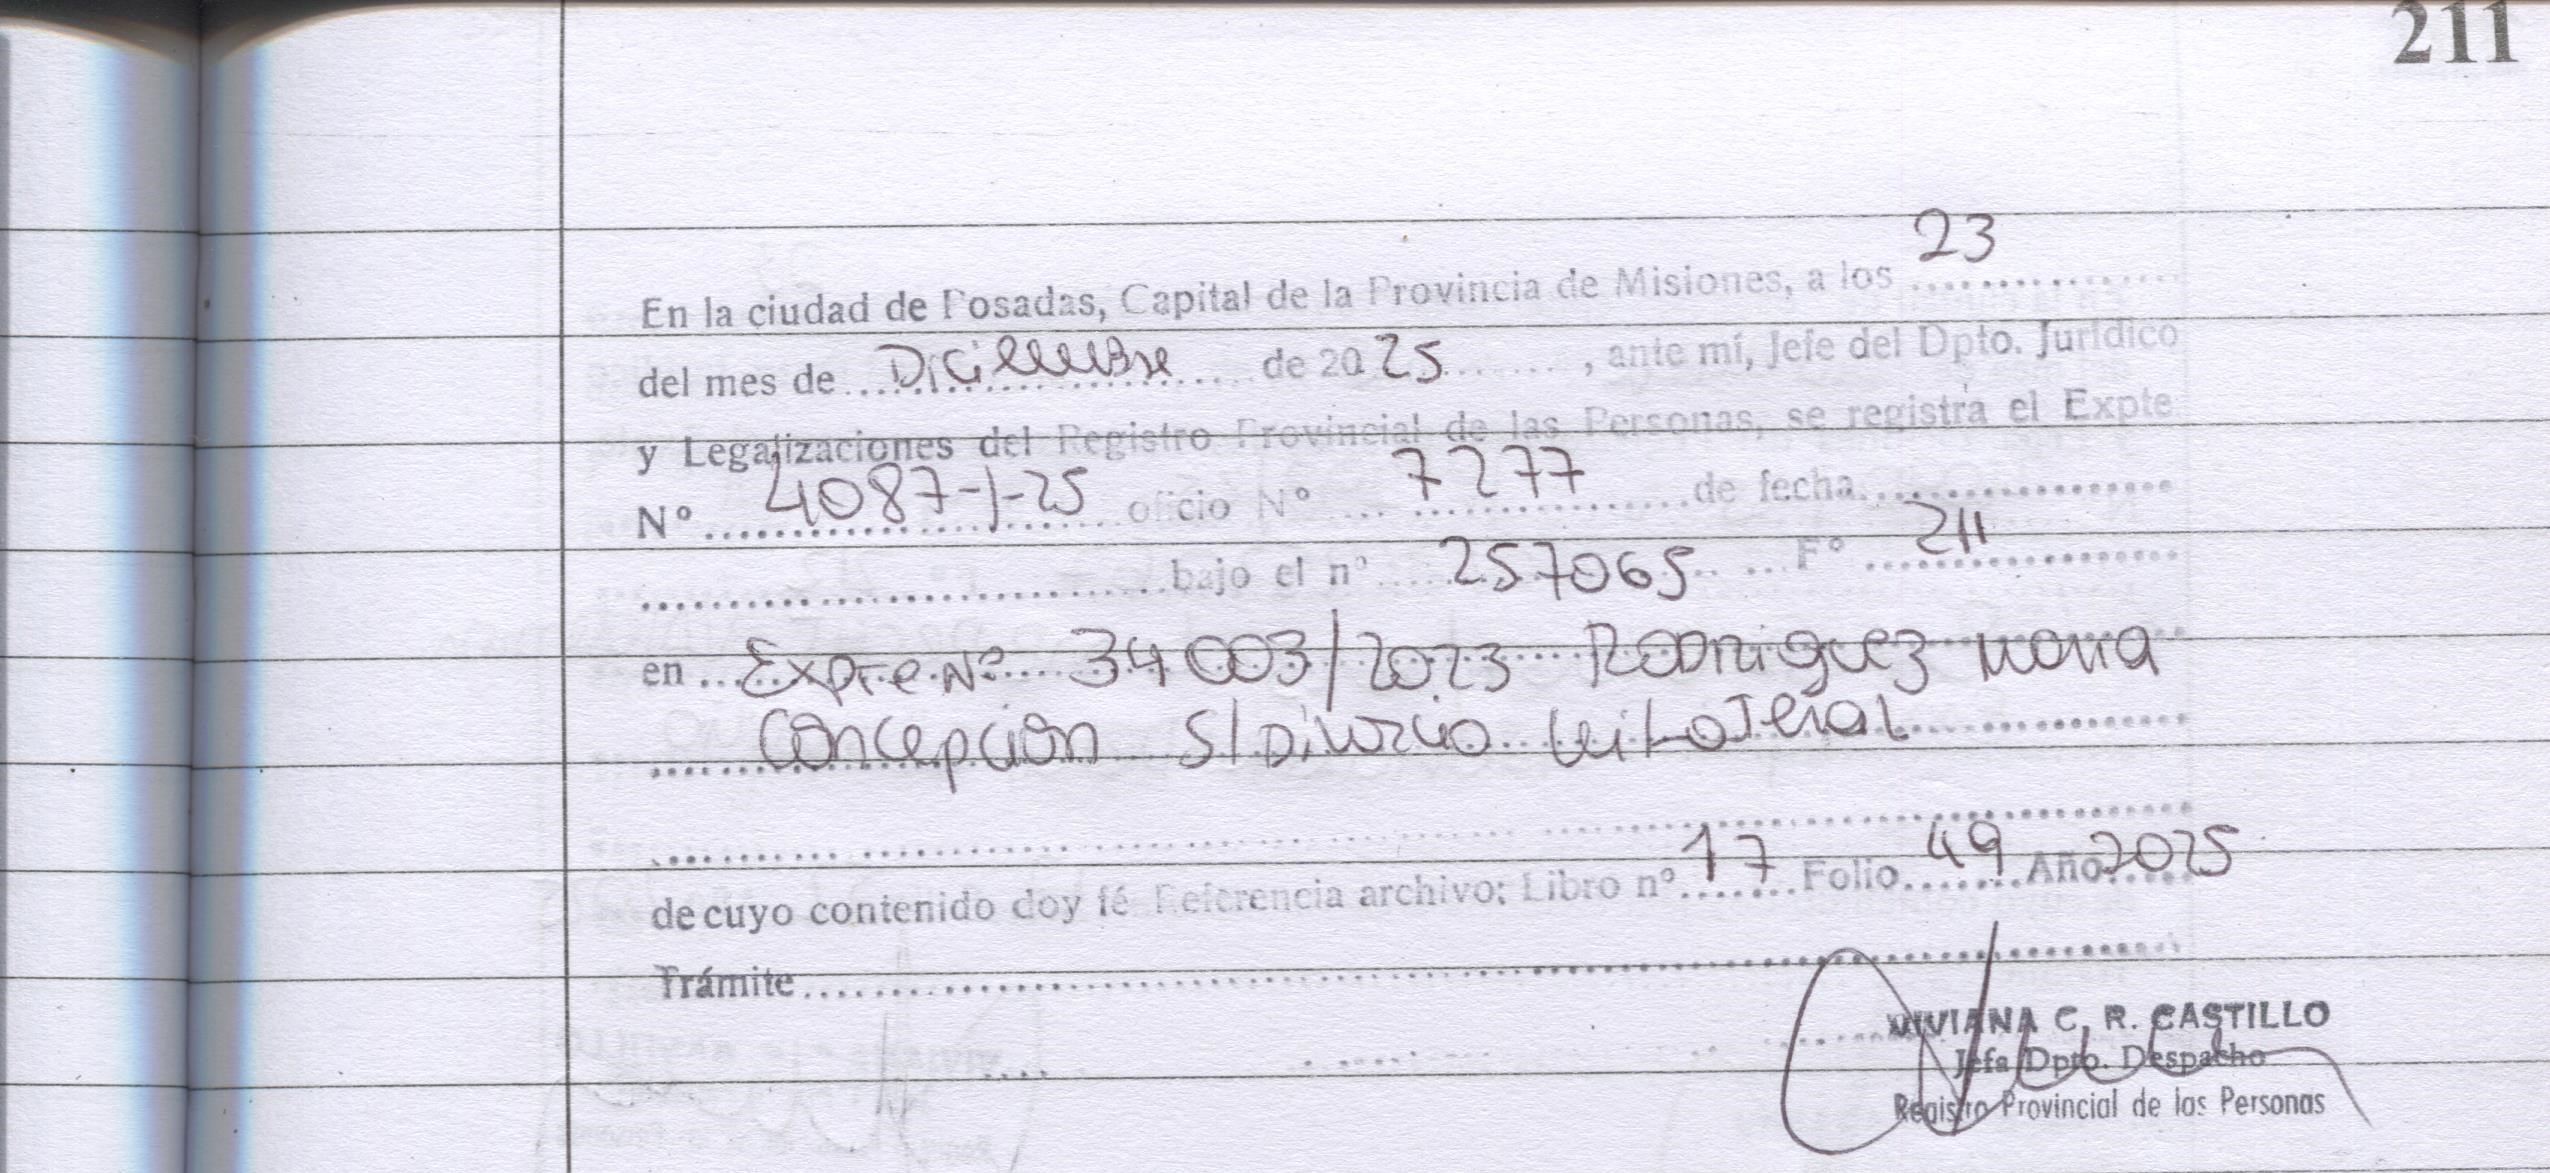 211
En la ciudad de Posadas, Capital de la Provincia de Misiones, a los 23
del mes de Diciembre de 2025, ante mí, Jefe del Dpto. Jurídico
y Legalizaciones del Registro Provincial de las Personas, se registra el Expte
Nº 4087-J-25 oficio Nº 7277 de fecha
bajo el nº 257065 Fº 211
en Expte Nº 34003/2023 Rodriguez Maria
Concepcion S/Divorcio Unilateral
de cuyo contenido doy fé Referencia archivo: Libro nº 17 Folio 49 Año 2025
Trámite
VIVIANA C. R. CASTILLO
Jefa Dpto. Despacho
Registro Provincial de las Personas